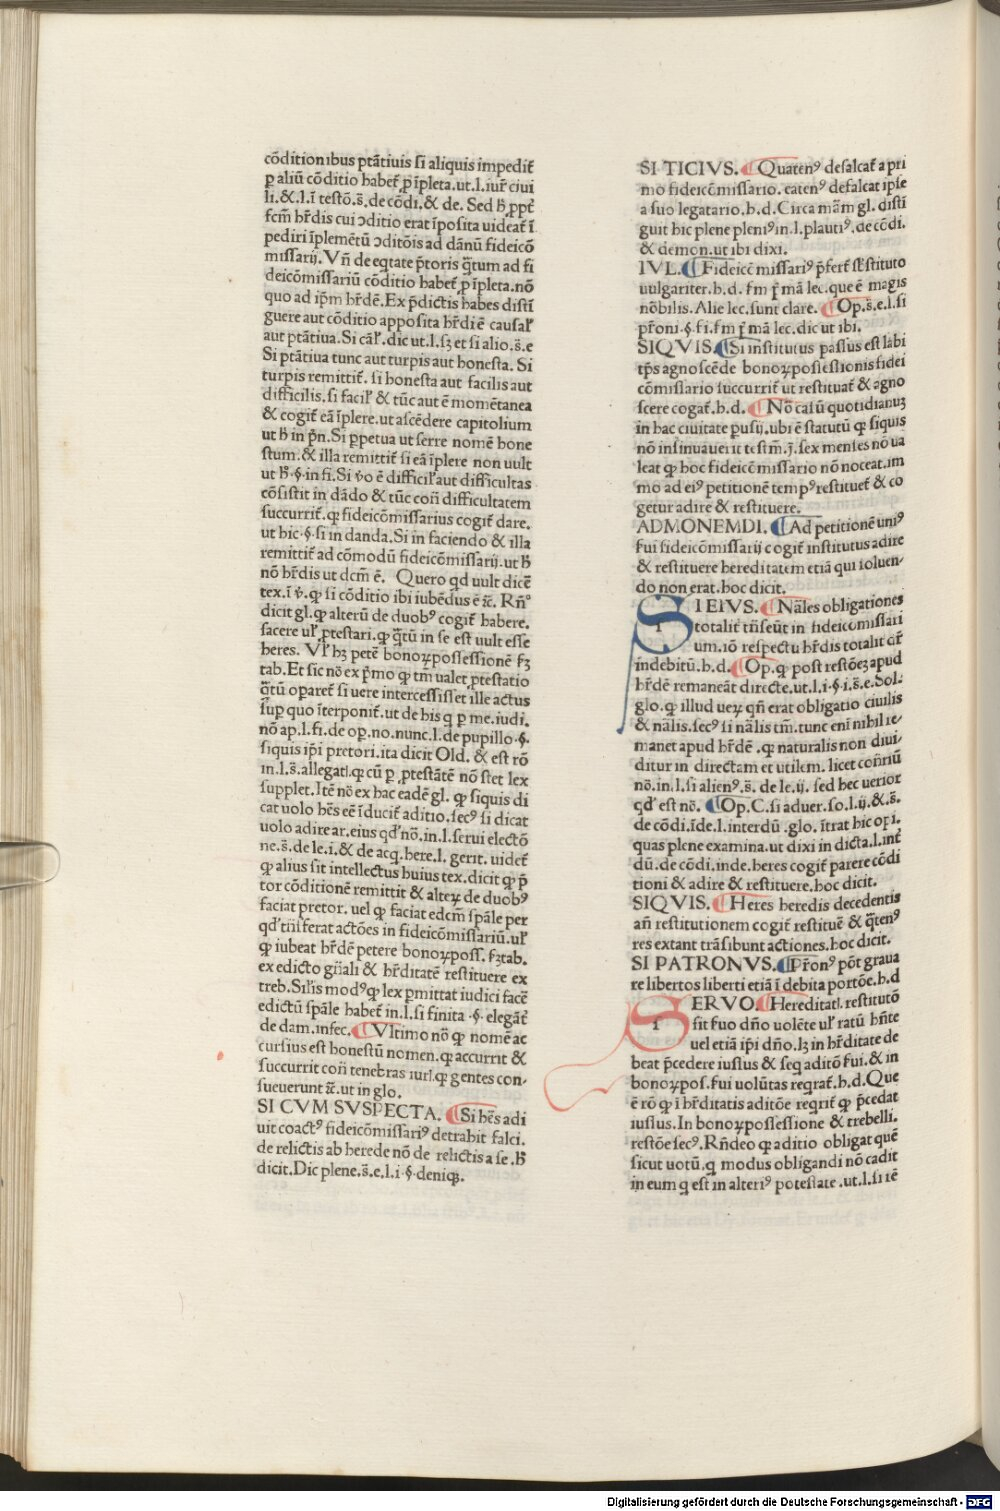 cõdition ibus ptãtiuis si aliquis impedit̃
p aliũ cõditio habet̃ p ĩpleta. ut. l. iur̃ ciui
li. &. l. ĩ testõ. s̃. de cõdi. & de. Sed ħ ppt̃
fcm̃ hr̃dis cui ↄditio erat ĩposita uideat̃ ĩ
pediri ĩplemẽtũ ↄditõis ad dãnũ fideicõ
missarij. Vñ de eqtate p̃toris q̃tum ad fi
deicõmissariũ cõditio habet̃ p ĩpleta. nõ
quo ad ip̃m hr̃dẽ. Ex p̃dictis habes distĩ
guere aut cõditio apposita hr̃di ẽ causal̃
aut ptãtiua. Si cãl̃. dic ut. l. sꝫ et si alio. s̃. e
Si ptãtiua tunc aut turpis aut honesta. Si
turpis remittit̃. si honesta aut facilis aut
difficilis. si facil̃ & tũc aut ẽ momẽtanea
& cogit̃ eã ĩplere. ut ascẽdere capitolium
ut ħ in p̃n. Si ppetua ut ferre nomẽ hone
stum. & illa remittit̃ si eã ĩplere non uult
ut ħ. §. in fi. Si ṽo ẽ difficil̃ aut difficultas
cõsistit in dãdo & tũc coñ difficultatem
succurrit̃. ꝙ fideicõmissarius cogit̃ dare.
ut hic. §. si in danda. Si in faciendo & illa
remittit̃ ad cõmodũ fideicõmissarij. ut ħ
nõ hr̃dis ut dcm̃ ẽ. Quero qd uult dicẽ
tex. ĩ ṽ. ꝙ si cõditio ibi iubẽdus ẽ ⁊c̃. Rñ°
dicit gl. ꝙ alterũ de duobꝰ cogit̃ habere.
facere ul̃ ptestari. ꝙ q̃tũ in se est uult esse
heres. Vl̃ hꝫ petẽ bonoꝝ possessionẽ sꝫ
tab. Et sic nõ ex p̃mo ꝙ tm̃ ualet ptestatio
q̃tũ oparet̃ si uere intercessisset ille actus
sup quo ĩterponit̃. ut de his q p me. iudi.
nõ ap. l. fi. de op. no. nunc. l. de pupillo. §.
siquis ip̃i pretori. ita dicit Old. & est rõ
in. l. s̃. allegatl. ꝙ cũ p ptestãtẽ nõ stet lex
supplet. Itẽ nõ ex hac eadẽ gl. ꝙ siquis di
cat uolo hẽs eẽ ĩducit̃ aditio. secꝰ si dicat
uolo adire ar. eius qd̃ nõ. in. l. serui electõ
ne. s̃. de le. i. & de acq. here. l. gerit. uidet̃
ꝙ alius sit intellectus huius tex. dicit ꝙ p̃
tor cõditionẽ remittit & alteꝝ de duobꝰ
faciat pretor. uel ꝙ faciat edcm̃ sp̃ale per
qd̃ trãsferat actões in fideicõmissariũ. ul̃
ꝙ iubeat hr̃dẽ petere bonoꝝ poss. sꝫ tab.
ex edicto gñali & hr̃ditatẽ restituere ex
treb. Sil̃is modꝰ ꝙ lex pmittat iudici facẽ
edictũ sp̃ale habet̃ in. l. si finita. §. elegãt̃
de dam. infec. Vltimo nõ ꝙ nomẽ ac
cursius est honestũ nomen. ꝙ accurrit &
succurrit coñ tenebras iurl. ꝙ gentes con-
sueuerunt ⁊c̃. ut in glo.
SI CVM SVSPECTA. Si hẽs adi
uit coactꝰ fideicõmissariꝰ detrahit falci.
de relictis ab herede nõ de relictis a se. ħ
dicit. Dic plene. s̃. e. l. i. §. deniqꝫ.
SI TICIVS. Quatenꝰ defalcat̃ a pri
mo fideicõmissario. eatenꝰ defalcat ipse
a suo legatario. h. d. Circa mãm gl. disti
guit hic plene pleniꝰ in. l. plautiꝰ. de cõdi.
& demon. ut ibi dixi.
IVL. Fideicẽmissariꝰ p̃fert̃ sƀstituto
uulgariter. h. d. s̃m p̃mã lec. que ẽ magis
nõbilis. Alie lec. sunt clare. Op. s̃. e. l. si
pr̃oni. §. fi. s̃m p̃mã lec. dic ut ibi.
SIQVIS. Si institutus passus est labi
tp̃s agnoscẽde bonoꝝ possessionis fidei
cõmissario succurrit̃ ut restituat̃ & agno
scere cogat̃. h. d. Nõ casũ quotidianuꝫ
in hac ciuitate pusij. ubi ẽ statutũ ꝙ siquis
nõ insinuauerit testm̃. j. sex menses nõ ua
leat ꝙ hoc fideicẽmissario nõ noceat. im
mo ad eiꝰ petitionẽ tempꝰ restituet̃ & co
getur adire & restituere.
ADMONEMDI. Ad petitionẽ uniꝰ
sui fideicõmissarij cogit̃ institutus adire
& restituere hereditatem etiã qui soluen-
do non erat. hoc dicit.
SEIVS. Nãles obligationes
totalit̃ trñseũt in fideicomissari
um. iõ respectu hr̃dis totalit̃ dr̃
indebitũ. h. d. Op. ꝙ post restõeꝫ apud
hr̃dẽ remaneãt directe. ut. l. i. §. i. s̃. e. Sol.
glo. ꝙ illud ueꝝ qñ erat obligatio ciuilis
& nãlis. secꝰ si nãlis tm̃. tunc enĩ nihil re-
manet apud hr̃dẽ. ꝙ naturalis non diui-
ditur in directam et utilem. licet coñriũ
nõ. in. l. si alienꝰ. s̃. de le. ij. sed hec uerior
qd̃ est nõ. Op. C. si aduer. so. l. ij. &. s̃.
de cõdi. ĩde. l. interdũ. glo. ĩtrat hic opi.
quas plene examina. ut dixi in dicta. l. int̃
dũ. de cõdi. inde. heres cogit̃ parere cõdi
tioni & adire & restituere. hoc dicit.
SIQVIS. Heres heredis decedentis
añ restitutionem cogit̃ restituẽ & q̃tenꝰ
res extant trãsibunt actiones. hoc dicit.
SI PATRONVS. Pr̃onꝰ põt graua
re libertos liberti etiã ĩ debita portõe. h. d
SERVO. Hereditatl. restitutõ
fit suo dño uolẽte ul̃ ratũ hñte
uel etiã ip̃i dño. lꝫ in hr̃ditate de
beat p̃cedere iussus & seq aditõ sui. & in
bonoꝝ pos. sui uolũtas reqrat̃. h. d. Que
ẽ rõ ꝙ ĩ hr̃ditatis aditõe reqrit̃ ꝙ p̃cedat
iussus. In bonoꝝ possessione & trebelli.
restõe secꝰ. Rñdeo ꝙ aditio obligat quẽ
sicut uotũ. q modus obligandi nõ cadit
in eum q est in alteriꝰ potestate. ut. l. si iẽ
Digitalisierung gefördert durch die Deutsche Forschungsgemeinschaft - DFG